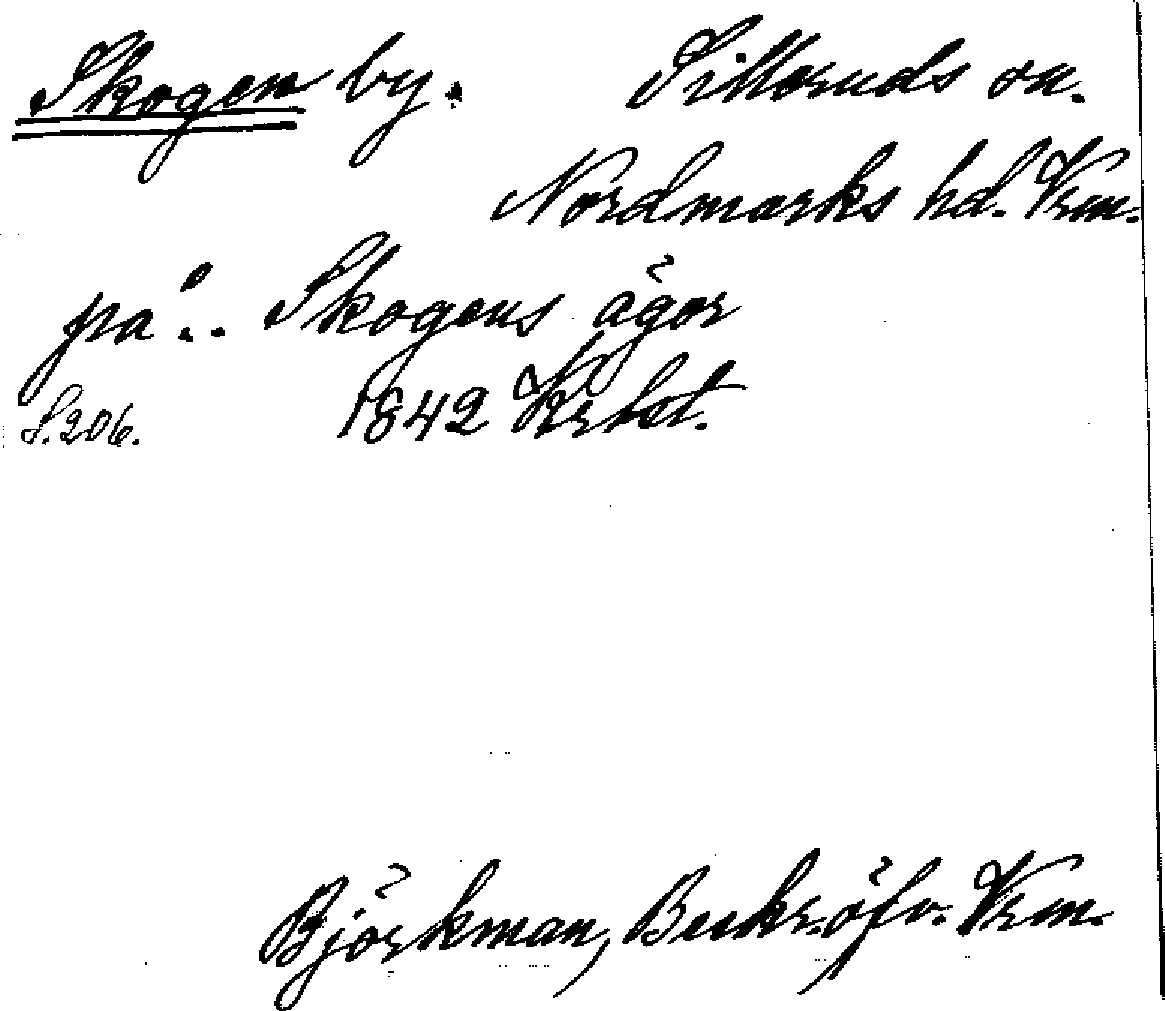 Skogen by. Silleruds sn.
Nordmarks hd. Vrm.
på .. Skogens ägor
S. 206. 1842
Björkman, Beskr. öfv. Vrm.